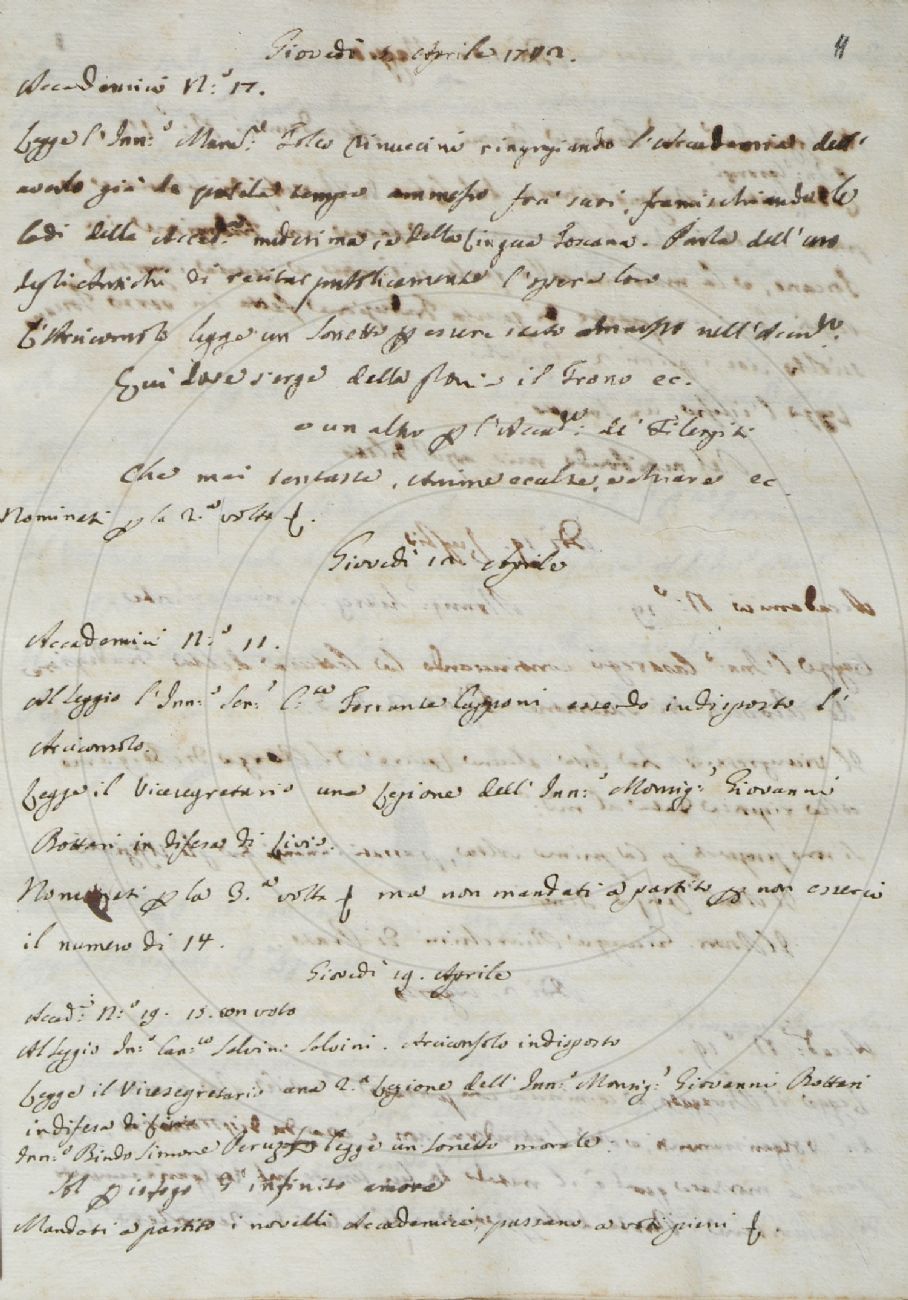 11
Giovedì 5. Aprile 1742.
Accademici N.° 17.
Legge l'Inn.° March.e Folco Rinuccini ringraziando l'Accademia dell'
averlo già da tempo ammesso fra suoi, framischiando le
lodi della Accad.a medesima, e della Lingua Toscana. Parla dell'uso
degli Antichi di recitar pubblicamente l'opere loro
L'Arciconsolo legge un Sonetto p essere stato ammesso nell'Accad.a
Qui dove s'erge della il Trono ec.
e un altro p l'Accad.a de'
Che mai tentaste, Anime eccelse, e chiare ec.
Nominati p la 2.a volta
Giovedì 12. Aprile
Accademici N.° 11.
Al Leggio l'Inn.° Sen.r C.te Ferrante Capponi essendo indisposto l'
Arciconsolo.
Legge il Vicesegretario una Lezione dell'Inn.° Monsig.r Giovanni
Bottari in difesa di Livio.
Nominati p la 3.a volta ma non mandati a partito p non esserci
il numero di 14.
Giovedì 19. Aprile
Accad.i N.° 19. 15. con voto
Al Leggio Inn.° Can.co Salvino Salvini. Arciconsolo indisposto
Legge il Vicesegretario una 2.a Lezione dell'Inn.° Monsig.r Giovanni Bottari
in difesa di Livio
Inn.° Bindo Simone Peruzzi legge un Sonetto morale.
p isfogo d'infinito amore
Mandati a partito i novelli Accademici, passano a voti pieni